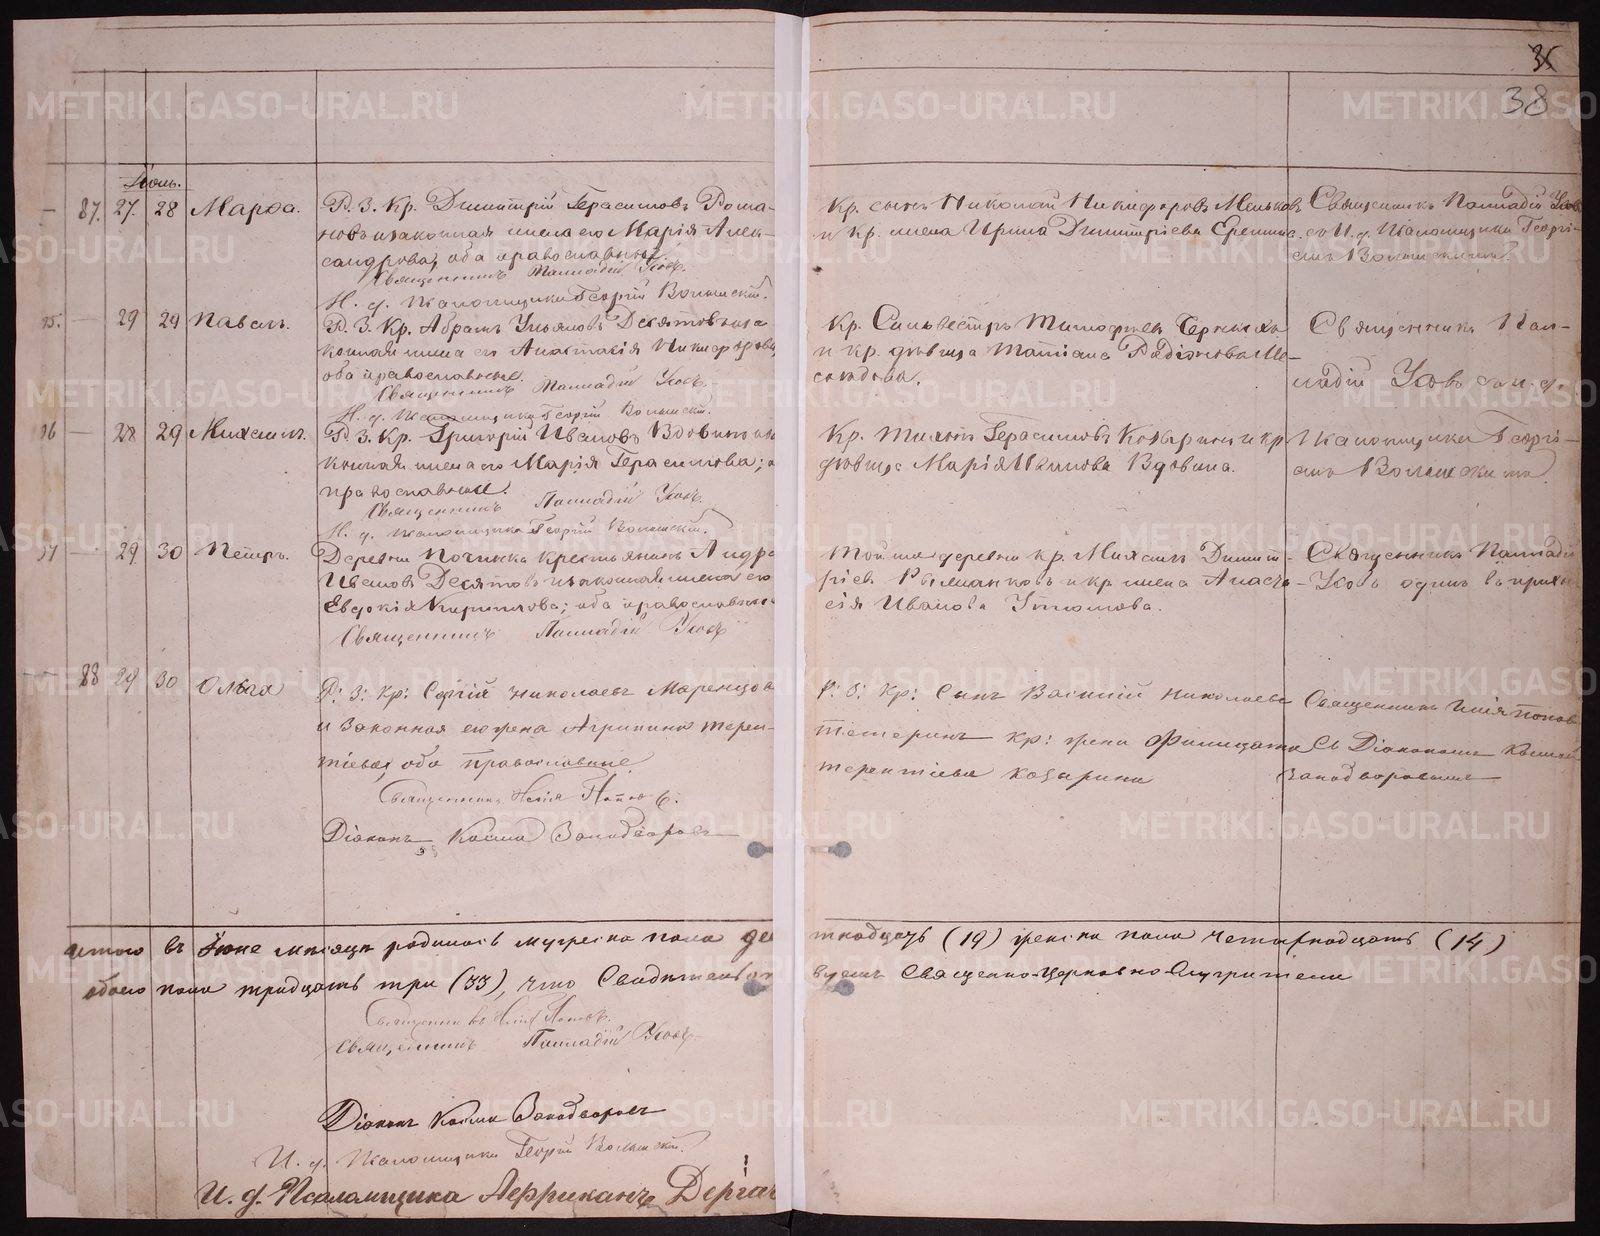 38
Марѳа.
87. 27. 28
Р. З. Кр. Димитрій Герасимовъ Рома-
новъ и законная жена его Марія Алек-
сандрова, оба православные.
Священникъ Палладій Уховъ.
И. д. Псаломщика Георгій Волынскій.
Кр. сынъ Николай Никифоровъ Меньковъ
и кр. жена Ирина Димитріева Еремина.
Священникъ Палладій Уховъ
со И. д. Псаломщика Георгі-
емъ Волынскимъ.
29 29 Павелъ.
Р. З. Кр. Абрамъ Ульяновъ Десятовъ и за-
конная жена его Анастасія Никифорова,
оба православные.
Священникъ Палладій Уховъ.
И. д. Псаломщика Георгій Волынскій.
Кр. Сильвестръ Тимофѣевъ
и кр. дѣвица Татіана Родіонова
Священникъ Пал-
ладій Уховъ со и. д.
28 29 Михаилъ.
Р. З. Кр. Григорій Ивановъ Вдовинъ и за-
конная жена его Марія Герасимова;
православные.
Священникъ Палладій Уховъ.
И. д. Псаломщика Георгій Волынскій.
Кр. Герасимовъ Козыринъ и кр
дѣвица Марія Вдовина.
Псаломщика Георгі-
емъ Волынскимъ.
29 30 Петръ.
Деревни Починка крестьянинъ Андре
Ивановъ Десятовъ и законная жена его
Евдокія Кириллова; оба православные
Священникъ Палладій Уховъ
Той же деревни кр. Михаилъ Димит-
ріевъ и кр. жена Анаста-
сія Иванова
Священникъ Палладій
Уховъ одинъ
88 29 30 Ольга
Р: З: Кр: Сергій Николаевъ
и Законная его жена Агрипина Терен-
тіева, оба православные
Священникъ Илія Поповъ.
Діаконъ Косма Заводоворовъ
Р: З: Кр: Сынъ Василій Николаевъ
Тетеринъ Кр: жена Фелицата
Терентіева Козырина
Священникъ Илія Поповъ
Съ Діакономъ Космой
Итого въ Іюнѣ мѣсяцѣ родилось мужеска пола де тнадцать (19) женска пола четырнадцать (14)
обоего пола тридцать три (33), что Свидѣтельст вуемъ Священно-Церковно-Служители
Священникъ Илія Поповъ.
Священникъ Палладій Уховъ
Діаконъ Косма
И. д. Псаломщика Георгій Волынскій.
И. д. Псаломщика Африканъ
METRIKI.GASO-URAL.RU